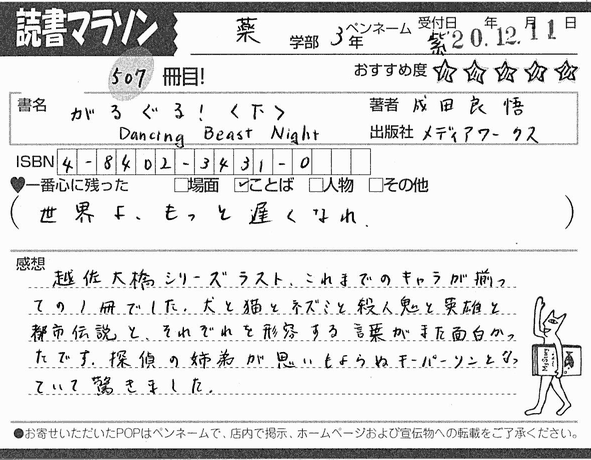 読書マラソン
薬 学部 3年 ペンネーム 紫 受付日 20年12月11日
507 冊目!
おすすめ度 ☆☆☆☆☆
書名 がるぐる!〈下〉
Dancing Beast Night
著者 成田良悟
出版社 メディアワークス
ISBN 4-8402-3431-0
♥一番心に残った □場面 ☑ことば □人物 □その他
(世界よ、もっと遅くなれ.)
感想
越佐大橋シリーズラスト、これまでのキャラが揃っ
ての1冊でした。犬と猫とネズミと殺人鬼と英雄と
都市伝説と、それぞれを形容する言葉がまた面白かっ
たです。探偵の姉弟が思いもよらぬキーパーソンとなっ
ていて驚きました。
●お寄せいただいたPOPはペンネームで、店内で掲示、ホームページおよび宣伝物への転載をご了承ください。